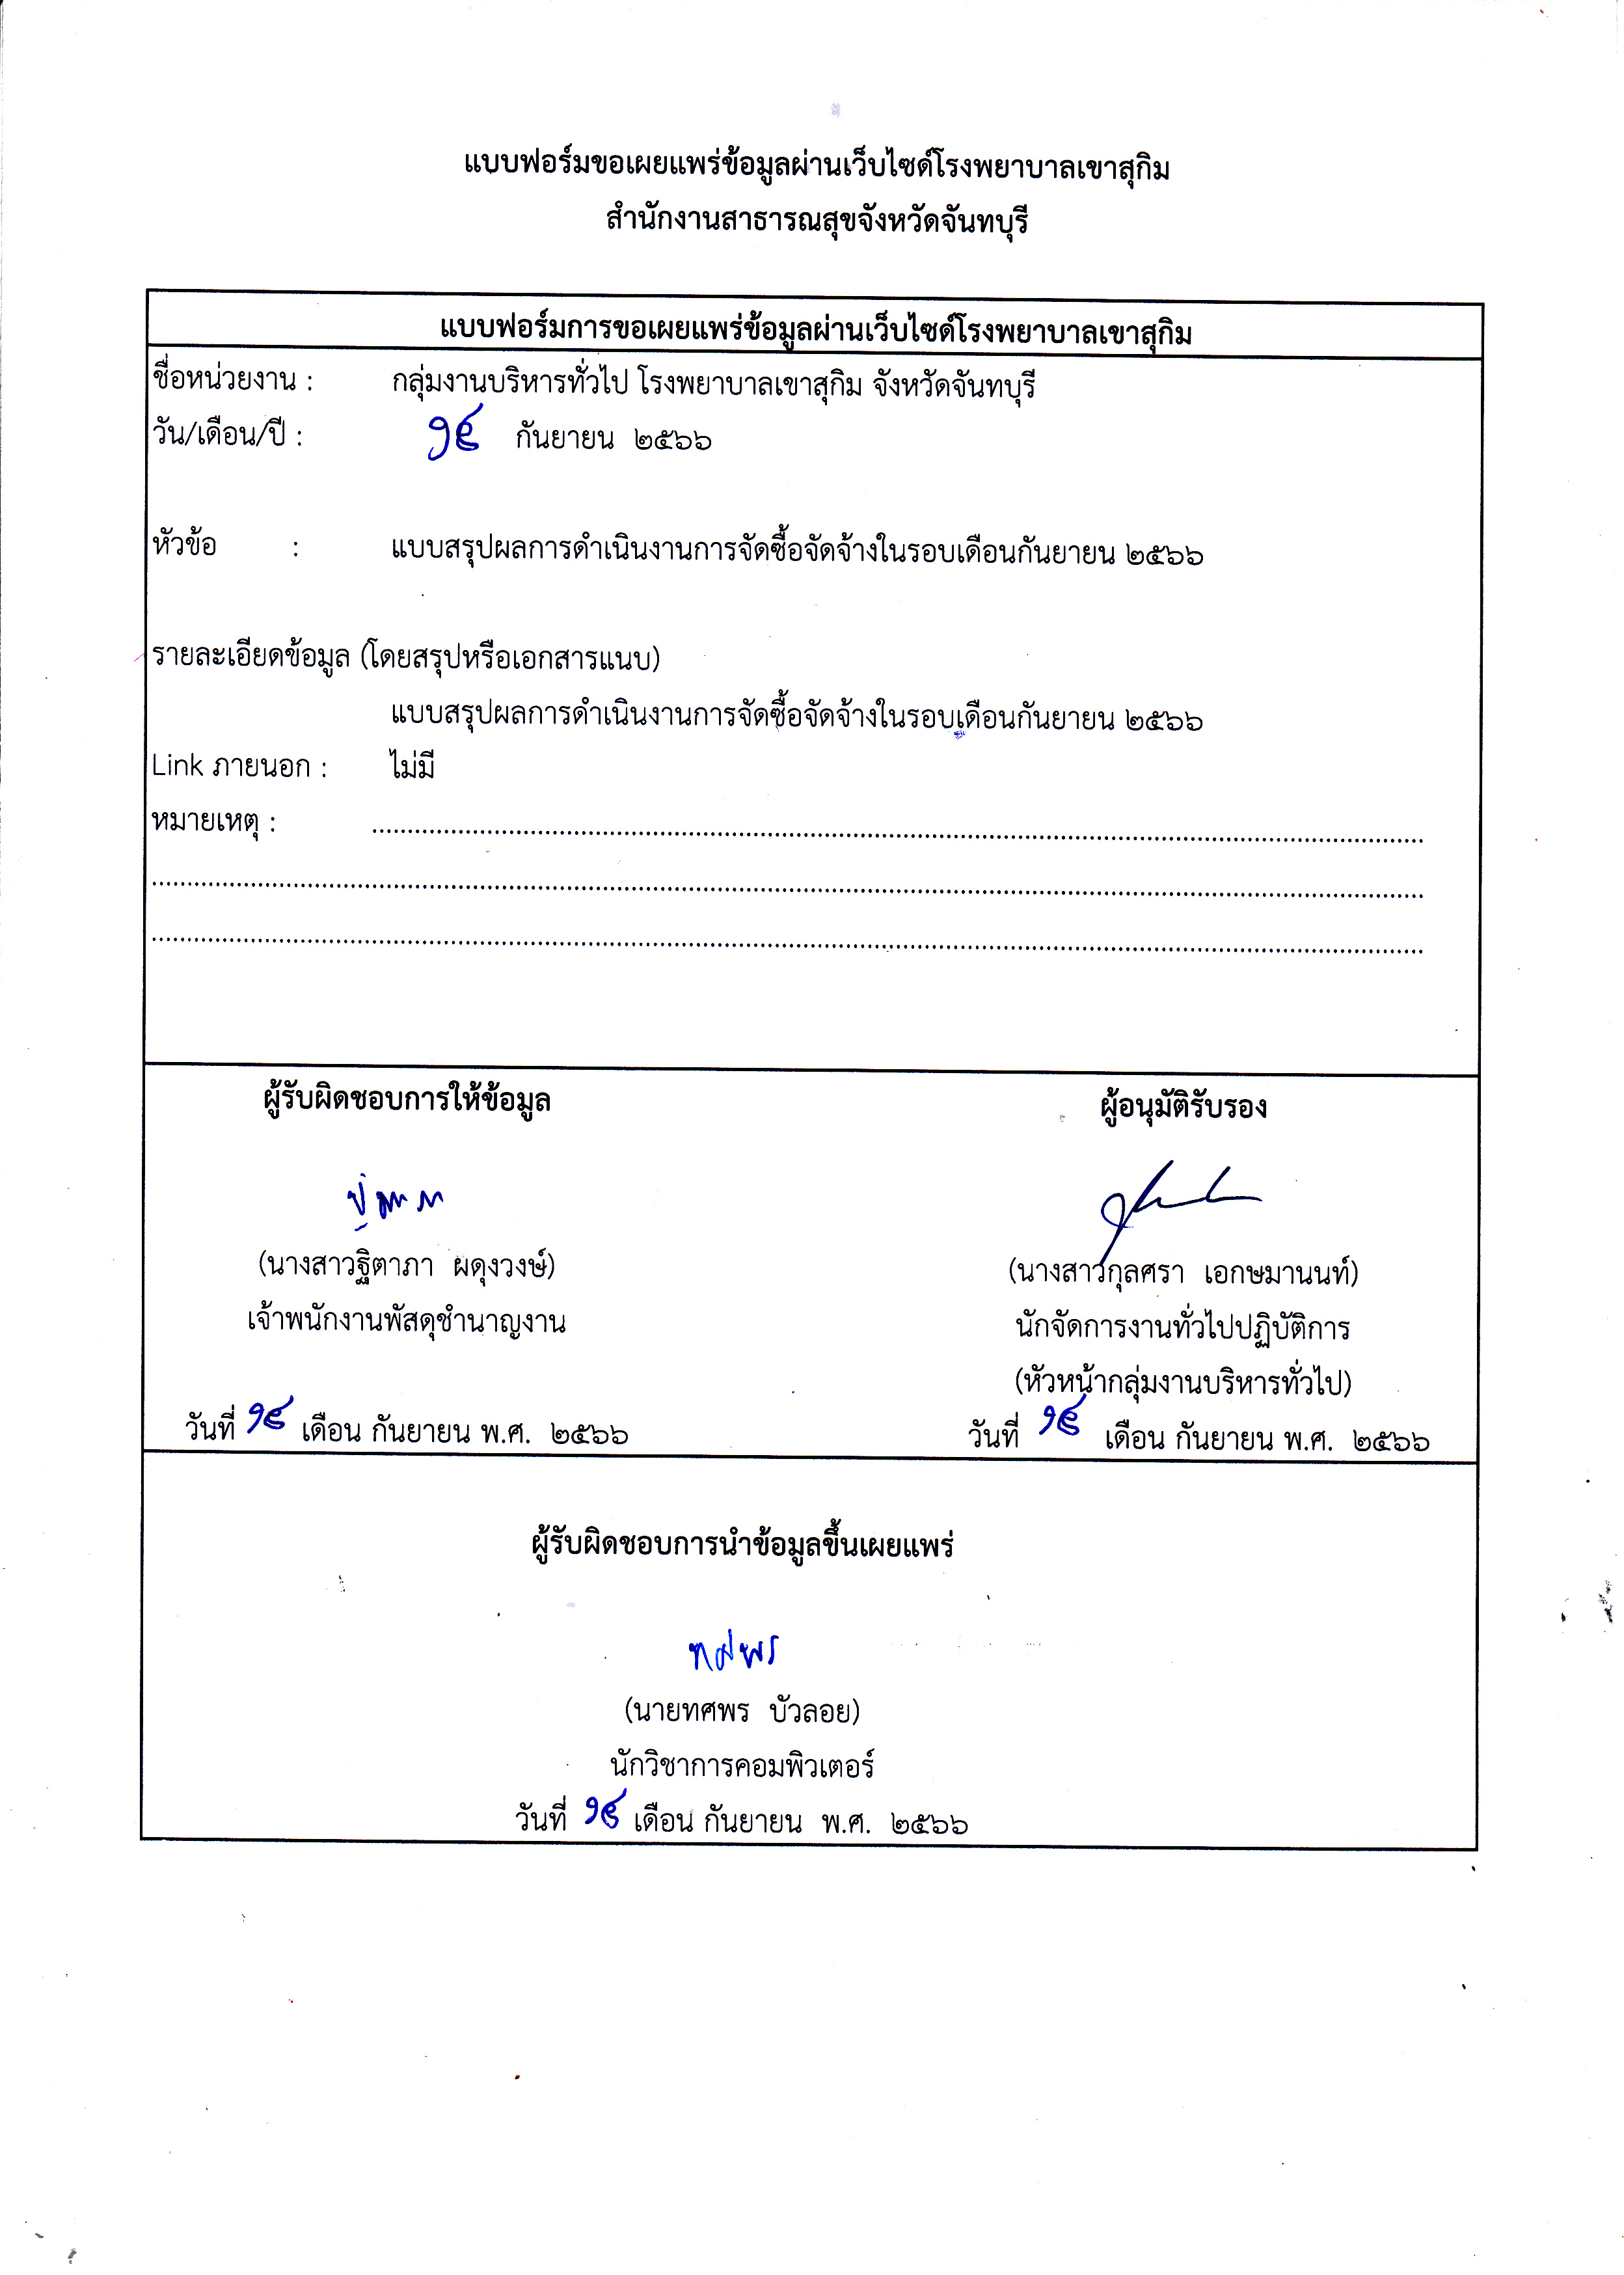 แบบฟอร์มขอเผยแพร่ข้อมูลผ่านเว็บไซด์โรงพยาบาลเขาสุกิม
สำนักงานสาธารณสุขจังหวัดจันทบุรี
แบบฟอร์มการขอเผยแพร่ข้อมูลผ่านเว็บไซด์โรงพยาบาลเขาสุกิม
ชื่อหน่วยงาน : กลุ่มงานบริหารทั่วไป โรงพยาบาลเขาสุกิม จังหวัดจันทบุรี
วัน/เดือน/ปี : ๑๙ กันยายน ๒๕๖๖
หัวข้อ : แบบสรุปผลการดำเนินงานการจัดซื้อจัดจ้างในรอบเดือนกันยายน ๒๕๖๖
รายละเอียดข้อมูล (โดยสรุปหรือเอกสารแนบ)
แบบสรุปผลการดำเนินงานการจัดซื้อจัดจ้างในรอบเดือนกันยายน ๒๕๖๖
Link ภายนอก : ไม่มี
หมายเหตุ :
ผู้รับผิดชอบการให้ข้อมูล
(นางสาวฐิตาภา ผดุงวงษ์)
เจ้าพนักงานพัสดุชำนาญงาน
วันที่ ๑๙ เดือน กันยายน พ.ศ. ๒๕๖๖
ผู้อนุมัติรับรอง
(นางสาวกุลศรา เอกษมานนท์)
นักจัดการงานทั่วไปปฏิบัติการ
(หัวหน้ากลุ่มงานบริหารทั่วไป)
วันที่ ๑๙ เดือน กันยายน พ.ศ. ๒๕๖๖
ผู้รับผิดชอบการนำข้อมูลขึ้นเผยแพร่
ทศพร
(นายทศพร บัวลอย)
นักวิชาการคอมพิวเตอร์
วันที่ ๑๙ เดือน กันยายน พ.ศ. ๒๕๖๖